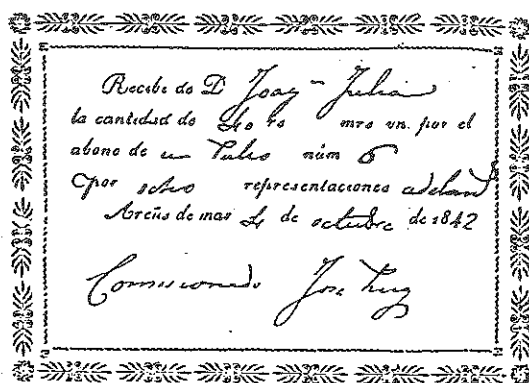 Recibe de D Joaqn Julia
la cantidad de 40 rs mrs vn. por el
abono de un Palco núm 6
por ocho representaciones adeland
Areñs de mar 4 de octubre de 1842
Comisionado José Puig